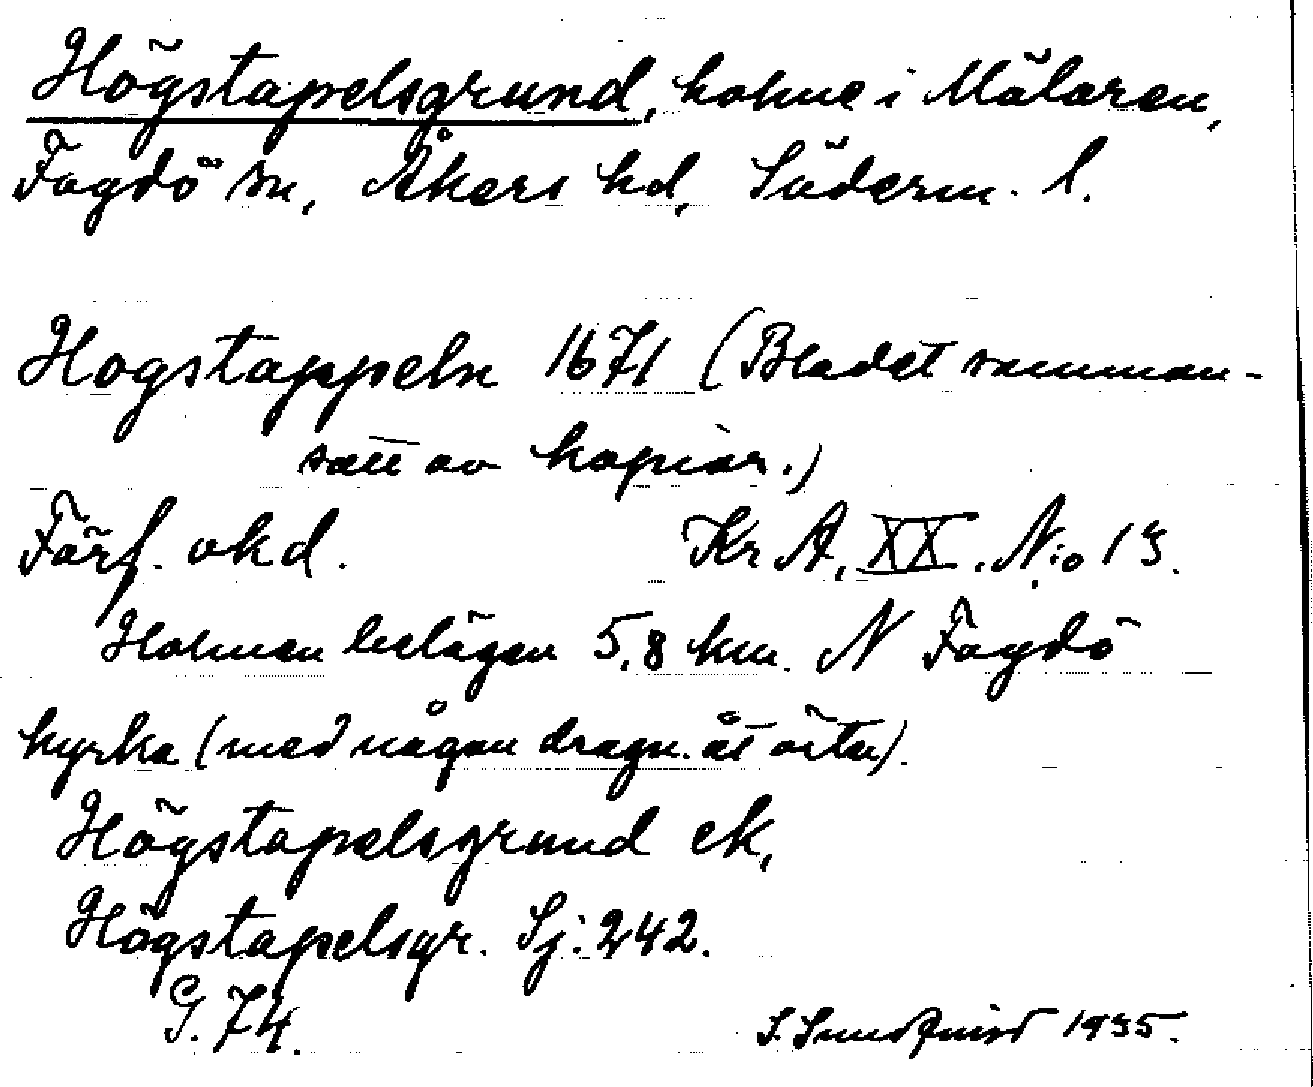 Högstapelsgrund, holme i Mälaren,
Fogdö sn, Åkers hd, Söderm. l.
Hogstappeln 1671 (Bladet samman-
satt av kopior.)
Förf. okd. Kr A, XX. N:o 13.
Holmen belägen 5,8 km. N Fogdö
kyrka (med någon dragn. åt öster).
Högstapelsgrund ek,
Högstapelsgr. Sj: 242.
G. 74.
S. Sundqvist 1935.